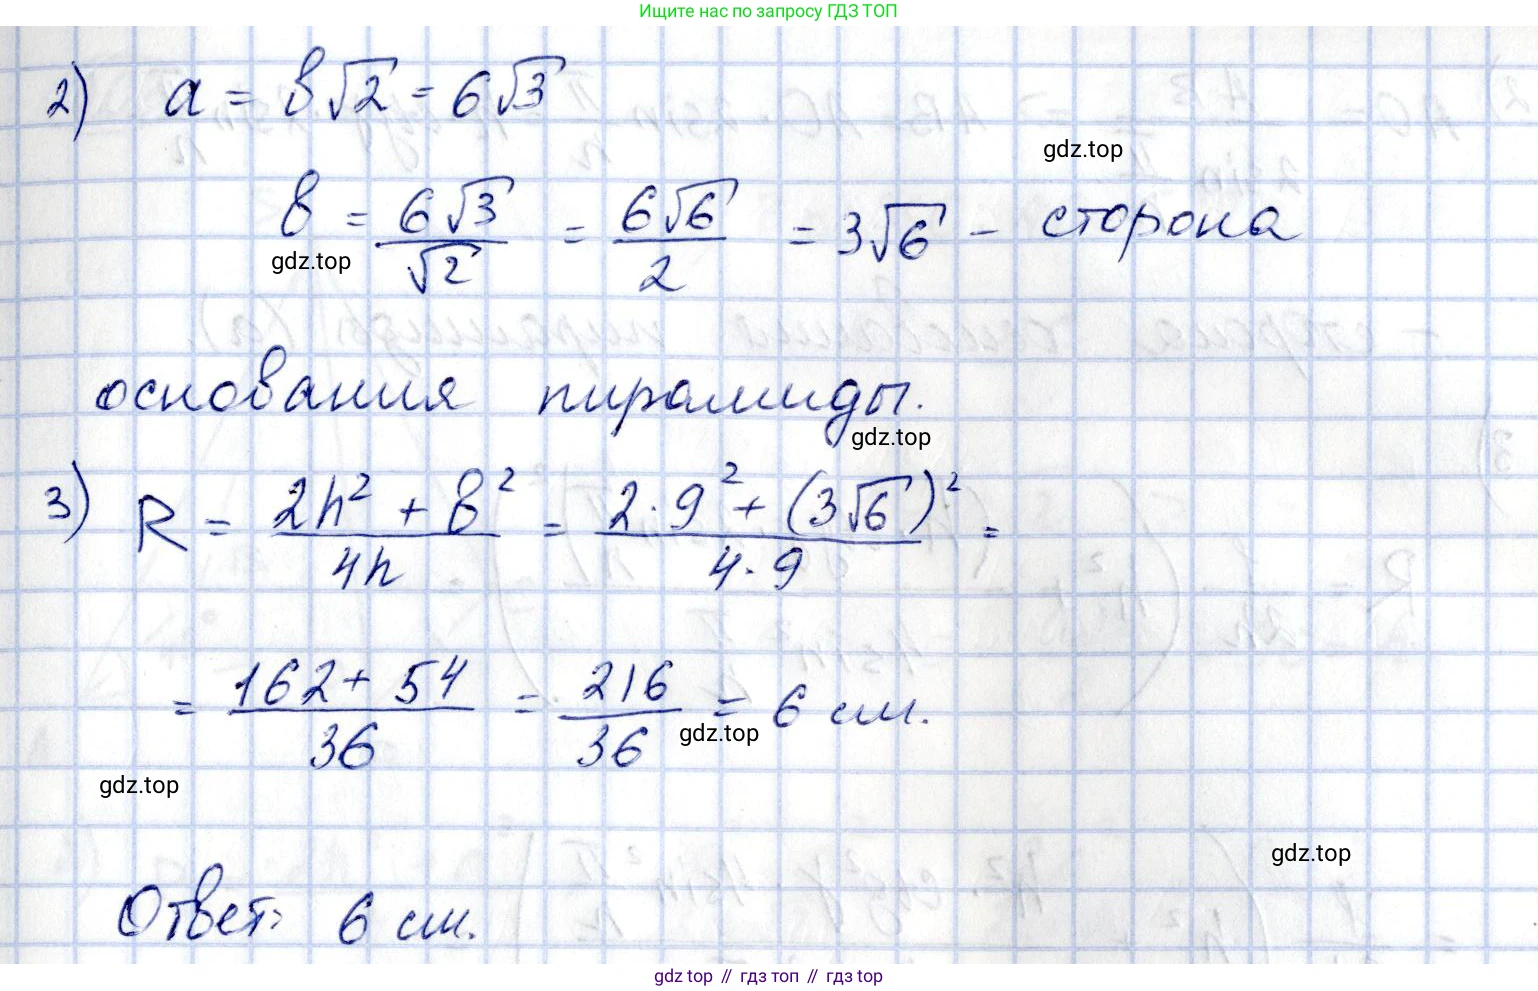 Ищите нас по запросу ГДЗ ТОП
2) a = в√2 = 6√3
gdz.top
в = 6√3/√2 = 6√6/2 = 3√6 - сторона
gdz.top
основания пирамиды.
gdz.top
3) R = (2h² + в²)/4h = (2·9² + (3√6)²)/(4·9) =
= (162 + 54)/36 = 216/36 = 6 см.
gdz.top
gdz.top
gdz.top
Ответ: 6 см.
gdz top // гдз топ // гдз top